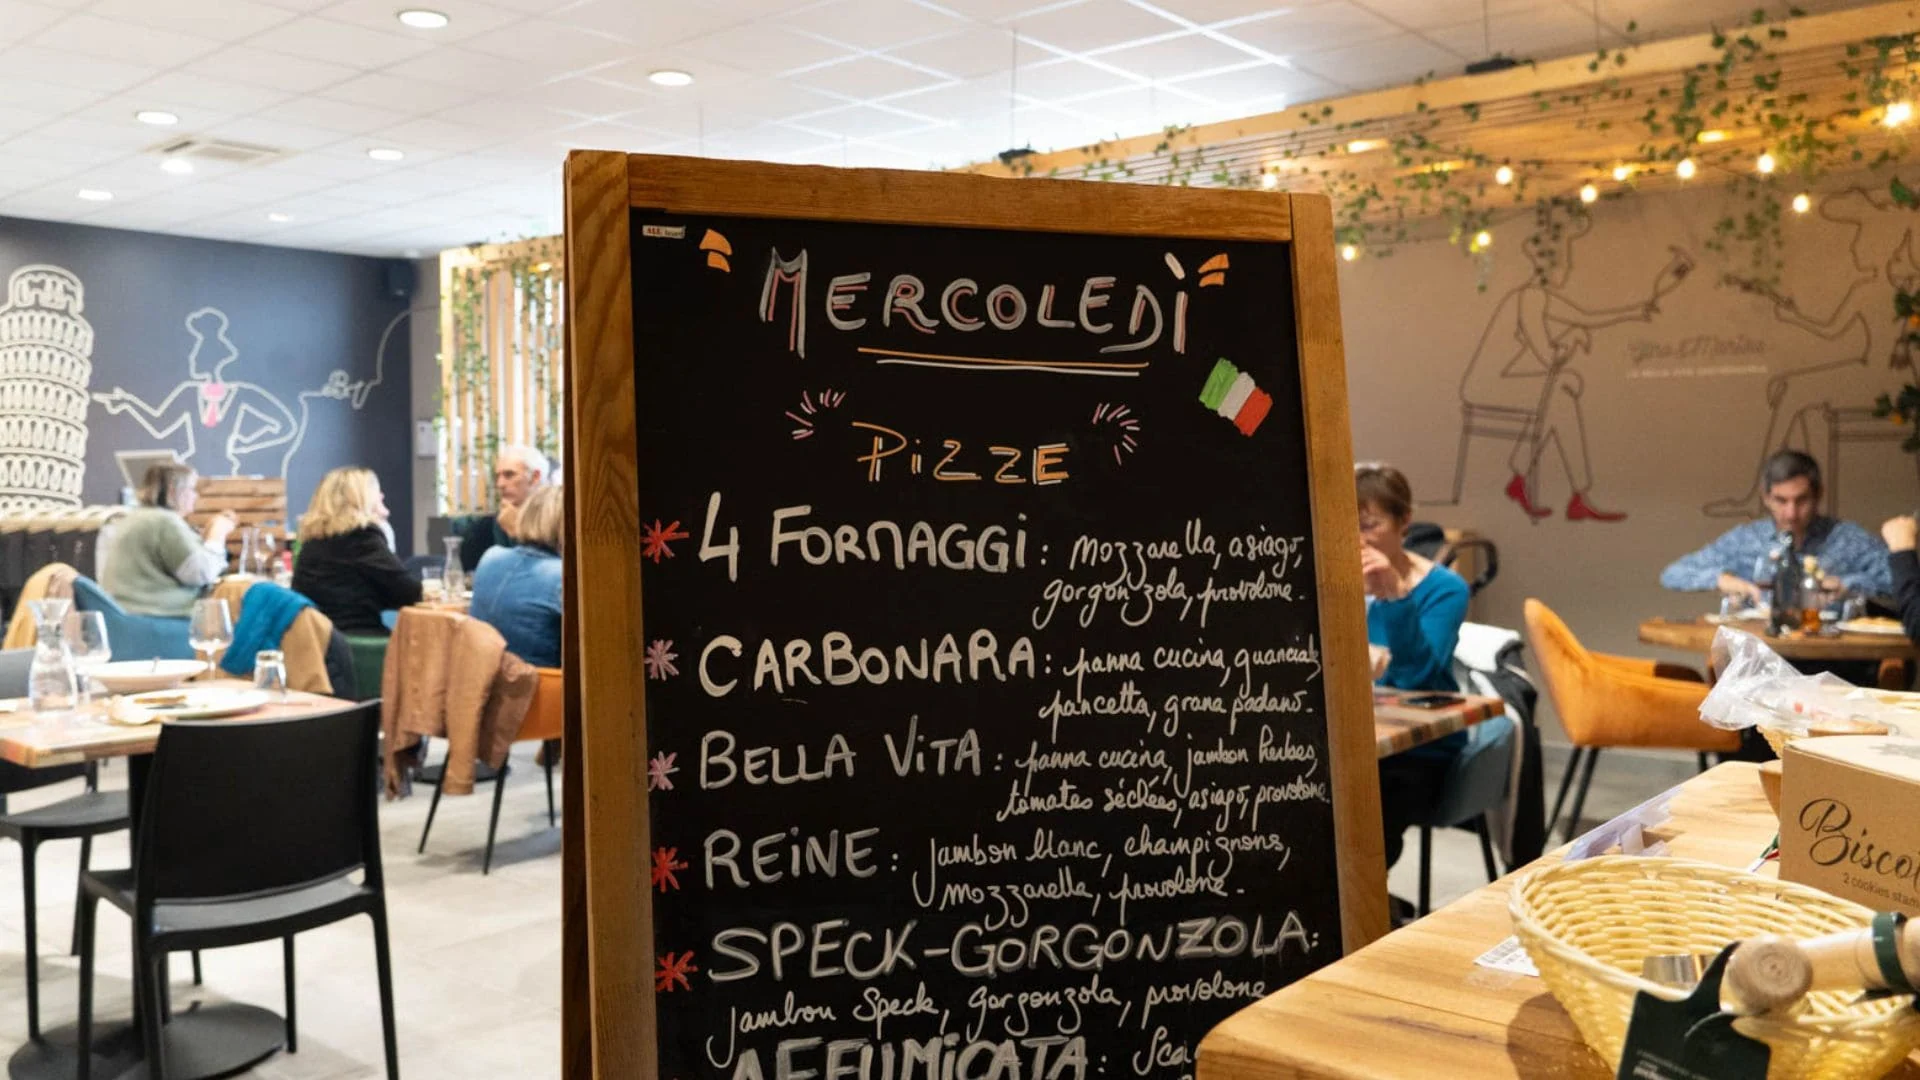 MERCOLEDÌ
PiZZE
4 FORMAGGi: mozzarella, asiago,
gorgonzola, provolone.
CARBONARA: panna cucina, guanciale
pancetta, grana padano.
BELLA ViTA: panna cucina, jambon herbes,
tomates séchées, asiago, provolone
REiNE: jambon blanc, champignons,
mozzarella, provolone.
SPECK-GORGONZOLA:
jambon Speck, gorgonzola, provolone
AFFUMiCATA:
2 cookies